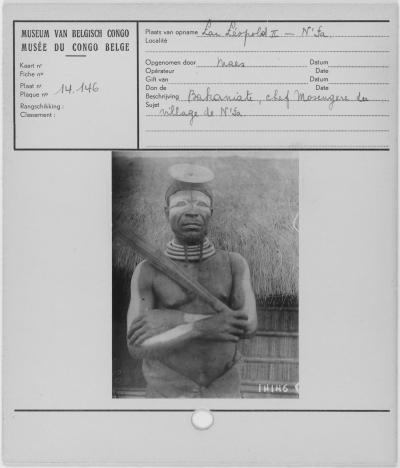 MUSEUM VAN BELGISCH CONGO
MUSÉE DU CONGO BELGE
Kaart nr
Fiche no
Plaat nr
Plaque no 14.146
Rangschikking :
Classement :
Plaats van opname Lac Léopold II – N'Sa
Localité
Opgenomen door Maes Datum
Opérateur Date
Gift van Datum
Don de Date
Beschrijving Bakaniate, chef Mosengere du
Sujet village de N'Sa
14146